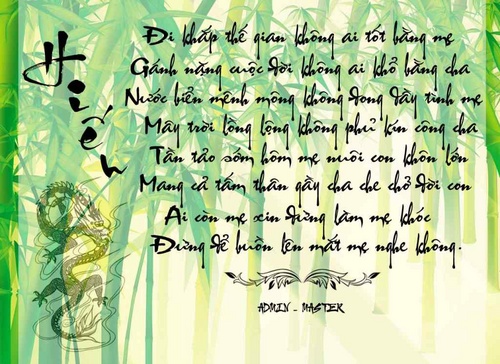 Hiếu
Đi khắp thế gian không ai tốt bằng mẹ
Gánh nặng cuộc đời không ai khổ bằng cha
Nước biển mênh mông không đong đầy tình mẹ
Mây trời lồng lộng không phủ kín công cha
Tần tảo sớm hôm mẹ nuôi con khôn lớn
Mang cả tấm thân gầy cha che chở đời con
Ai còn mẹ xin đừng làm mẹ khóc
Đừng để buồn lên mắt mẹ nghe không.
ADMIN - MASTER